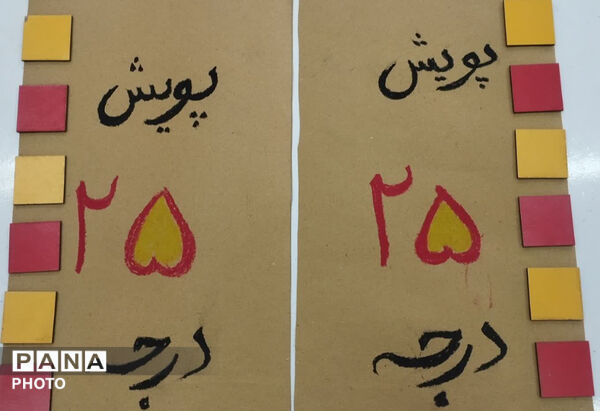 پویش
۲۵
درجه
پویش
۲۵
درجه
PANA
PHOTO